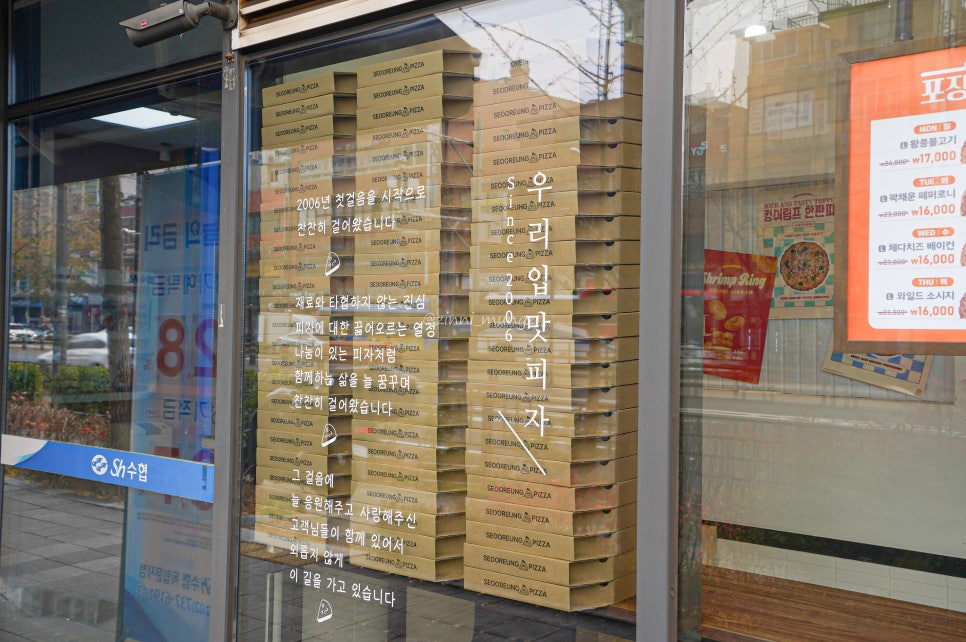 SEOOREUNG PIZZA
2006년 첫걸음을 시작으로
찬찬히 걸어왔습니다
재료와 타협하지 않는 진심
피자에 대한 끓어오르는 열정
나눔이 있는 피자처럼
함께하는 삶을 늘 꿈꾸며
찬찬히 걸어왔습니다
그 걸음에
늘 응원해주고 사랑해주신
고객님들이 함께 있어서
외롭지 않게
이 길을 가고 있습니다
우리입맛피자
Since2006
Sh수협
Shrimp Ring
RICH AND TASTY TOPPI
킹쉬림프 한판피
포장
MON 월
L 왕릉불고기
₩24,000 ₩17,000
TUE 화
L 꽉채운 페퍼로니
₩23,000 ₩16,000
WED 수
L 체다치즈 베이컨
₩23,000 ₩16,000
THU 목
L 와일드 소시지
₩23,000 ₩16,000